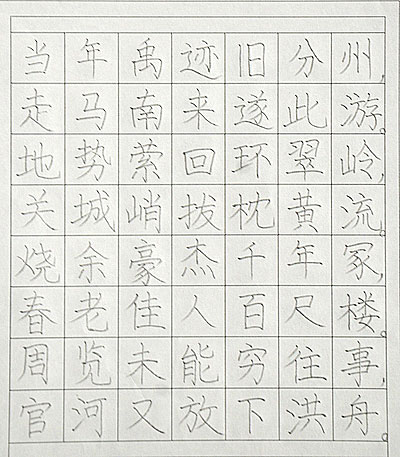 当年禹迹旧分州，
走马南来遂此游。
地势萦回环翠岭，
关城峭拔枕黄流。
烧余豪杰千年冢，
春老佳人百尺楼。
周览未能穷往事，
官河又放下洪舟。